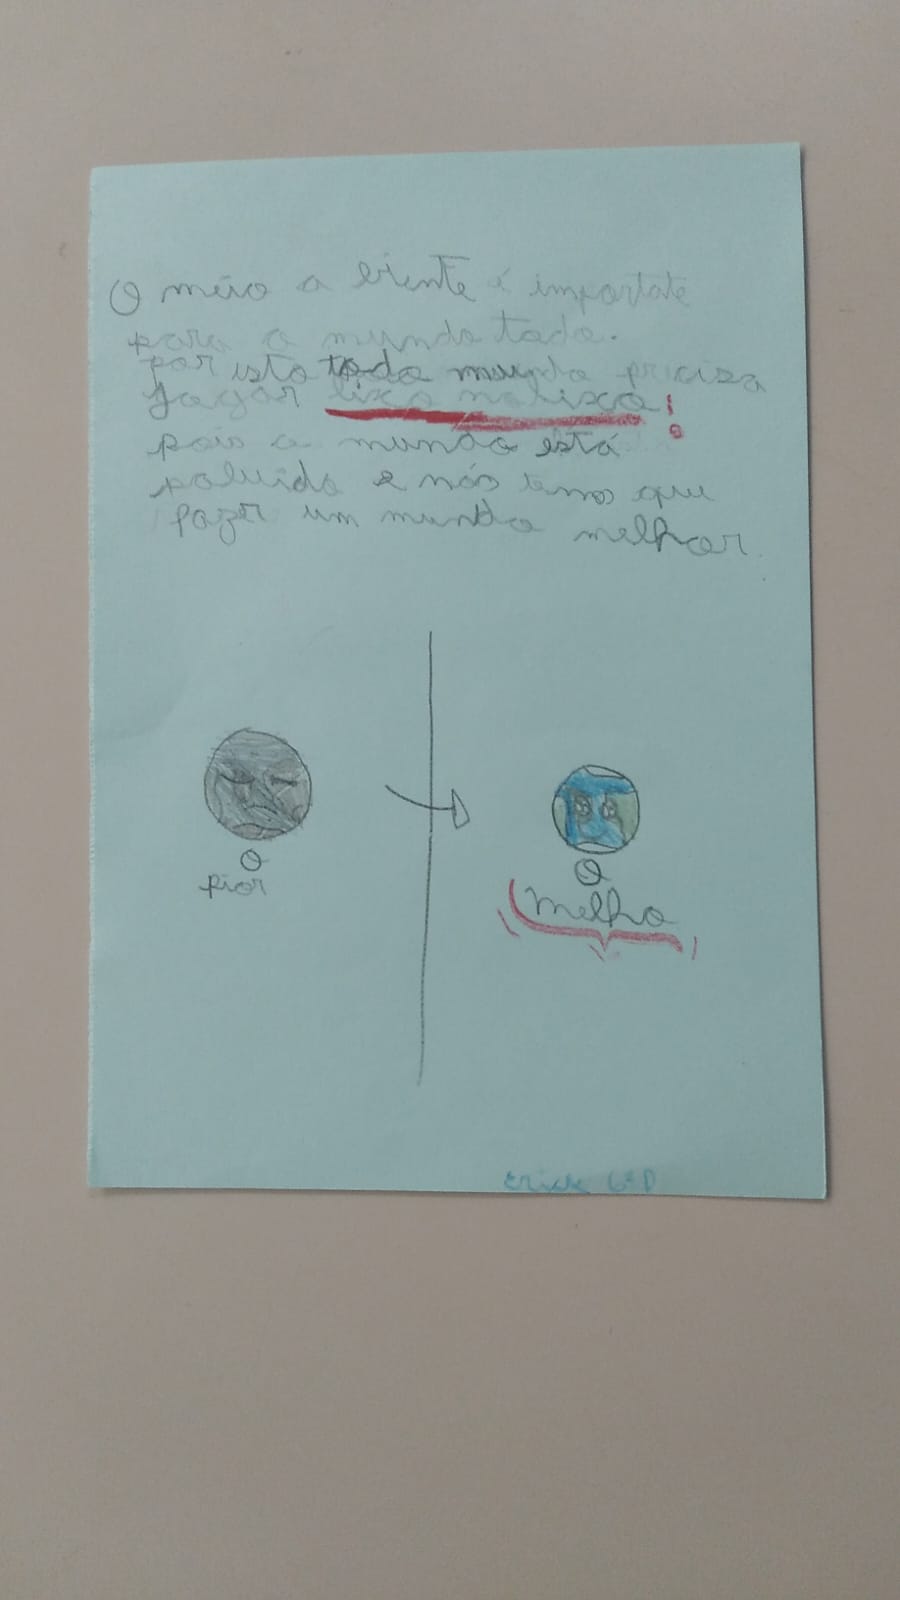 O meio a biente é importate
para o mundo todo.
por isto todo mundo pricisa
Jogar lixo no lixo!
pois o mundo está
poluido e nós temos que
fazer um mundo melhor.
O
pior
O
melho
Erick 6º D